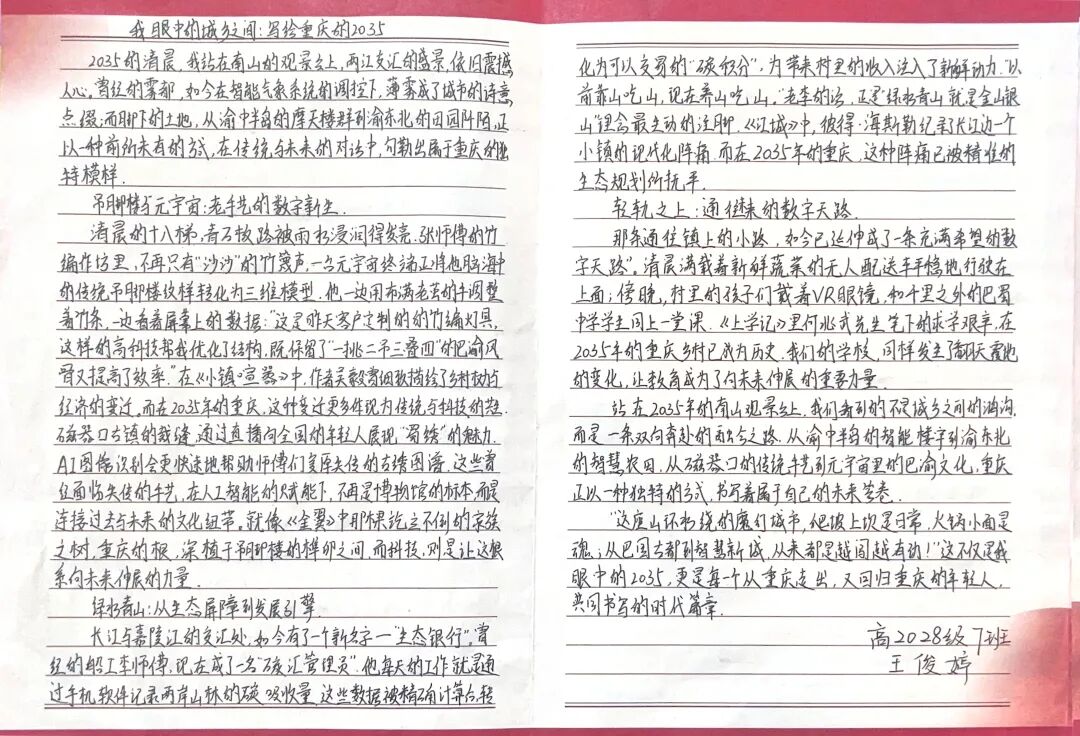 我眼中的城乡之间:写给重庆的2035
2035的清晨,我站在南山的观景台上,两江交汇的盛景,依旧震撼
人心。曾经的雾都,如今在智能气象系统的调控下,薄雾成了城市的诗意
点缀;而脚下的土地,从渝中半岛的摩天楼群到渝东北的田园阡陌,正
以一种前所未有的方式,在传统与未来的对话中,勾勒出属于重庆的独
特模样.
吊脚楼与元宇宙:老手艺的数字新生.
清晨的十八梯,青石板路被雨水浸润得发亮.张师傅的竹
编作坊里,不再只有“沙沙”的竹篾声,一台元宇宙终端正将他脑海中
的传统吊脚楼纹样转化为三维模型.他一边用布满老茧的手调整
着竹条,一边看着屏幕上的数据:“这是昨天客户定制的的竹编灯具,
这样的高科技帮我优化了结构,既保留了“一挑二吊三叠四”的巴渝风
骨又提高了效率.”在《小镇喧嚣》中,作者吴毅曾细致描绘了乡村权力与
经济的变迁.而在2035年的重庆,这种变迁更多体现为传统与科技的
磁器口古镇的裁缝,通过直播向全国的年轻人展现“蜀绣”的魅力.
AI图像识别会更快速地帮助师傅们复原失传的古绣图谱.这些曾
经面临失传的手艺,在人工智能的赋能下,不再是博物馆的标本,而是
连接过去与未来的文化纽带。就像《金翼》中那棵屹立不倒的家族
之树,重庆的根,深植于吊脚楼的榫卯之间,而科技,则是让这根
系向未来伸展的力量.
绿水青山:从生态屏障到发展引擎
长江与嘉陵江的交汇处,如今有了一个新名字—“生态银行”.曾
经的船工李师傅,现在成了一名“碳汇管理员”.他每天的工作就是通
过手机软件记录两岸山林的碳吸收量.这些数据被精确计算后,转
化为可以交易的“碳积分”,为带来村里的收入注入了新鲜动力.“以
前靠山吃山,现在养山吃山.”老李的话,正是“绿水青山就是金山银
山”理念最生动的注脚.《江城》中,彼得·海斯勒纪录长江边一个
小镇的现代化阵痛.而在2035年的重庆,这种阵痛已被精准的
生态规划所抚平.
轻轨之上:通往继来的数字天路.
那条通往镇上的小路,如今已延伸成了一条充满希望的数
字天路”.清晨满载着新鲜蔬菜的无人配送车平稳地行驶在
上面;傍晚,村里的孩子们戴着VR眼镜,和千里之外的巴蜀
中学学生同上一堂课.《上学记》里何兆武先生笔下的求学艰辛,在
2035年的重庆乡村已成为历史.我们的学校,同样发生了翻天覆地
的变化,让教育成为了向未来伸展的重要力量.
站在2035年的南山观景台上,我们看到的不是城乡之间的鸿沟,
而是一条双向奔赴的融合之路.从渝中半岛的智能楼宇到渝东北
的智慧农田,从磁器口的传统手艺到元宇宙里的巴渝文化,重庆
正以一种独特的方式,书写着属于自己的未来答卷.
“这座山环水绕的魔幻城市,爬坡上坎是日常,火锅小面是
魂;从巴国古都到智慧新城,从来都是越闯越有劲!”这不仅是我
眼中的2035,更是每个从重庆走出,又回归重庆的年轻人,
共同书写的时代篇章.
高2028级7班
王俊婷